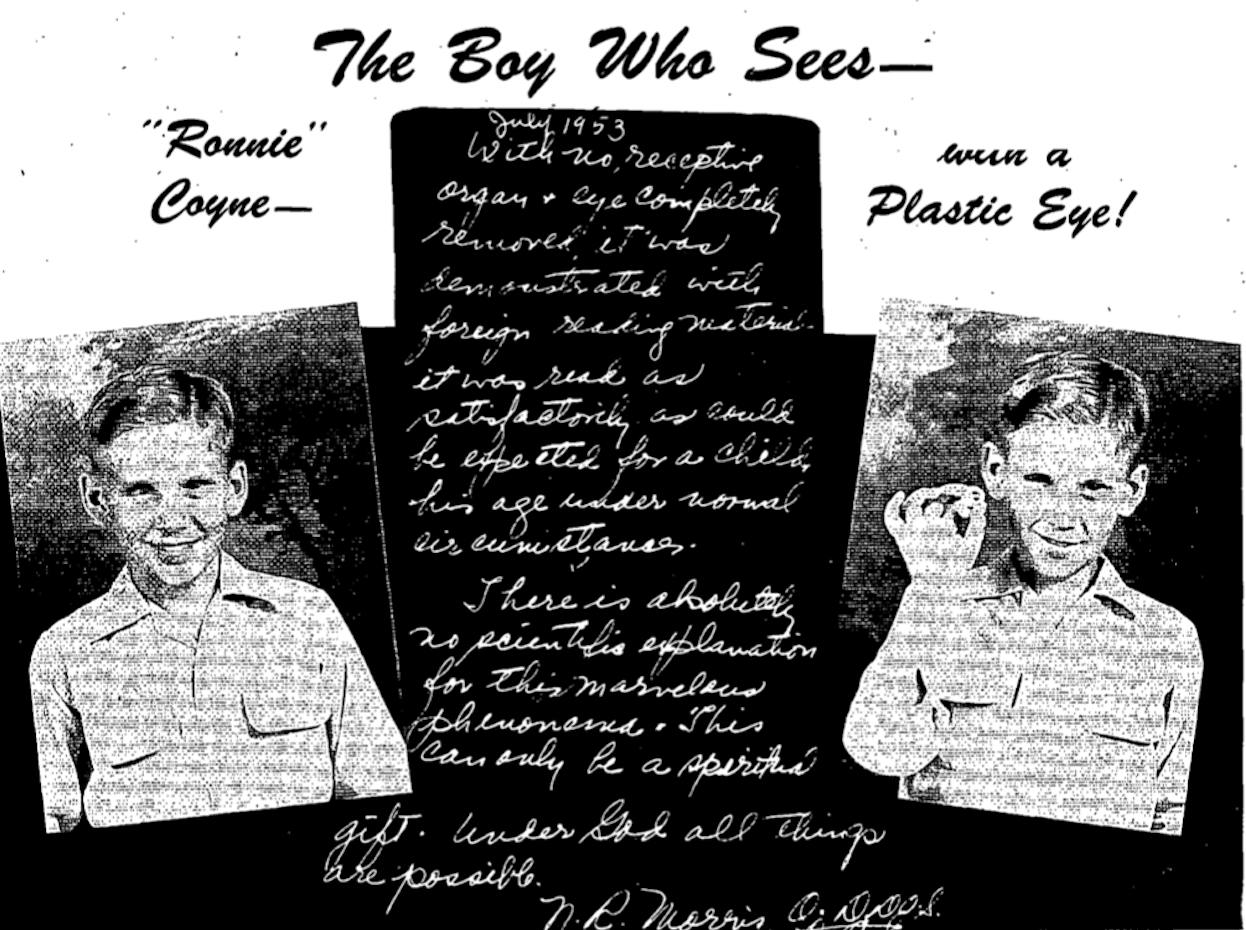 The Boy Who Sees—
"Ronnie"
Coyne—
with a
Plastic Eye!
July 1953
With no receptive
organ + eye completely
removed, it was
demonstrated with
foreign reading material.
it was read as
satisfactorily as could
be expected for a child
his age under normal
circumstances.
There is absolutely
no scientific explanation
for this marvelous
phenonama. This
can only be a spiritual
gift. Under God all things
are possible.
N. R. Morris